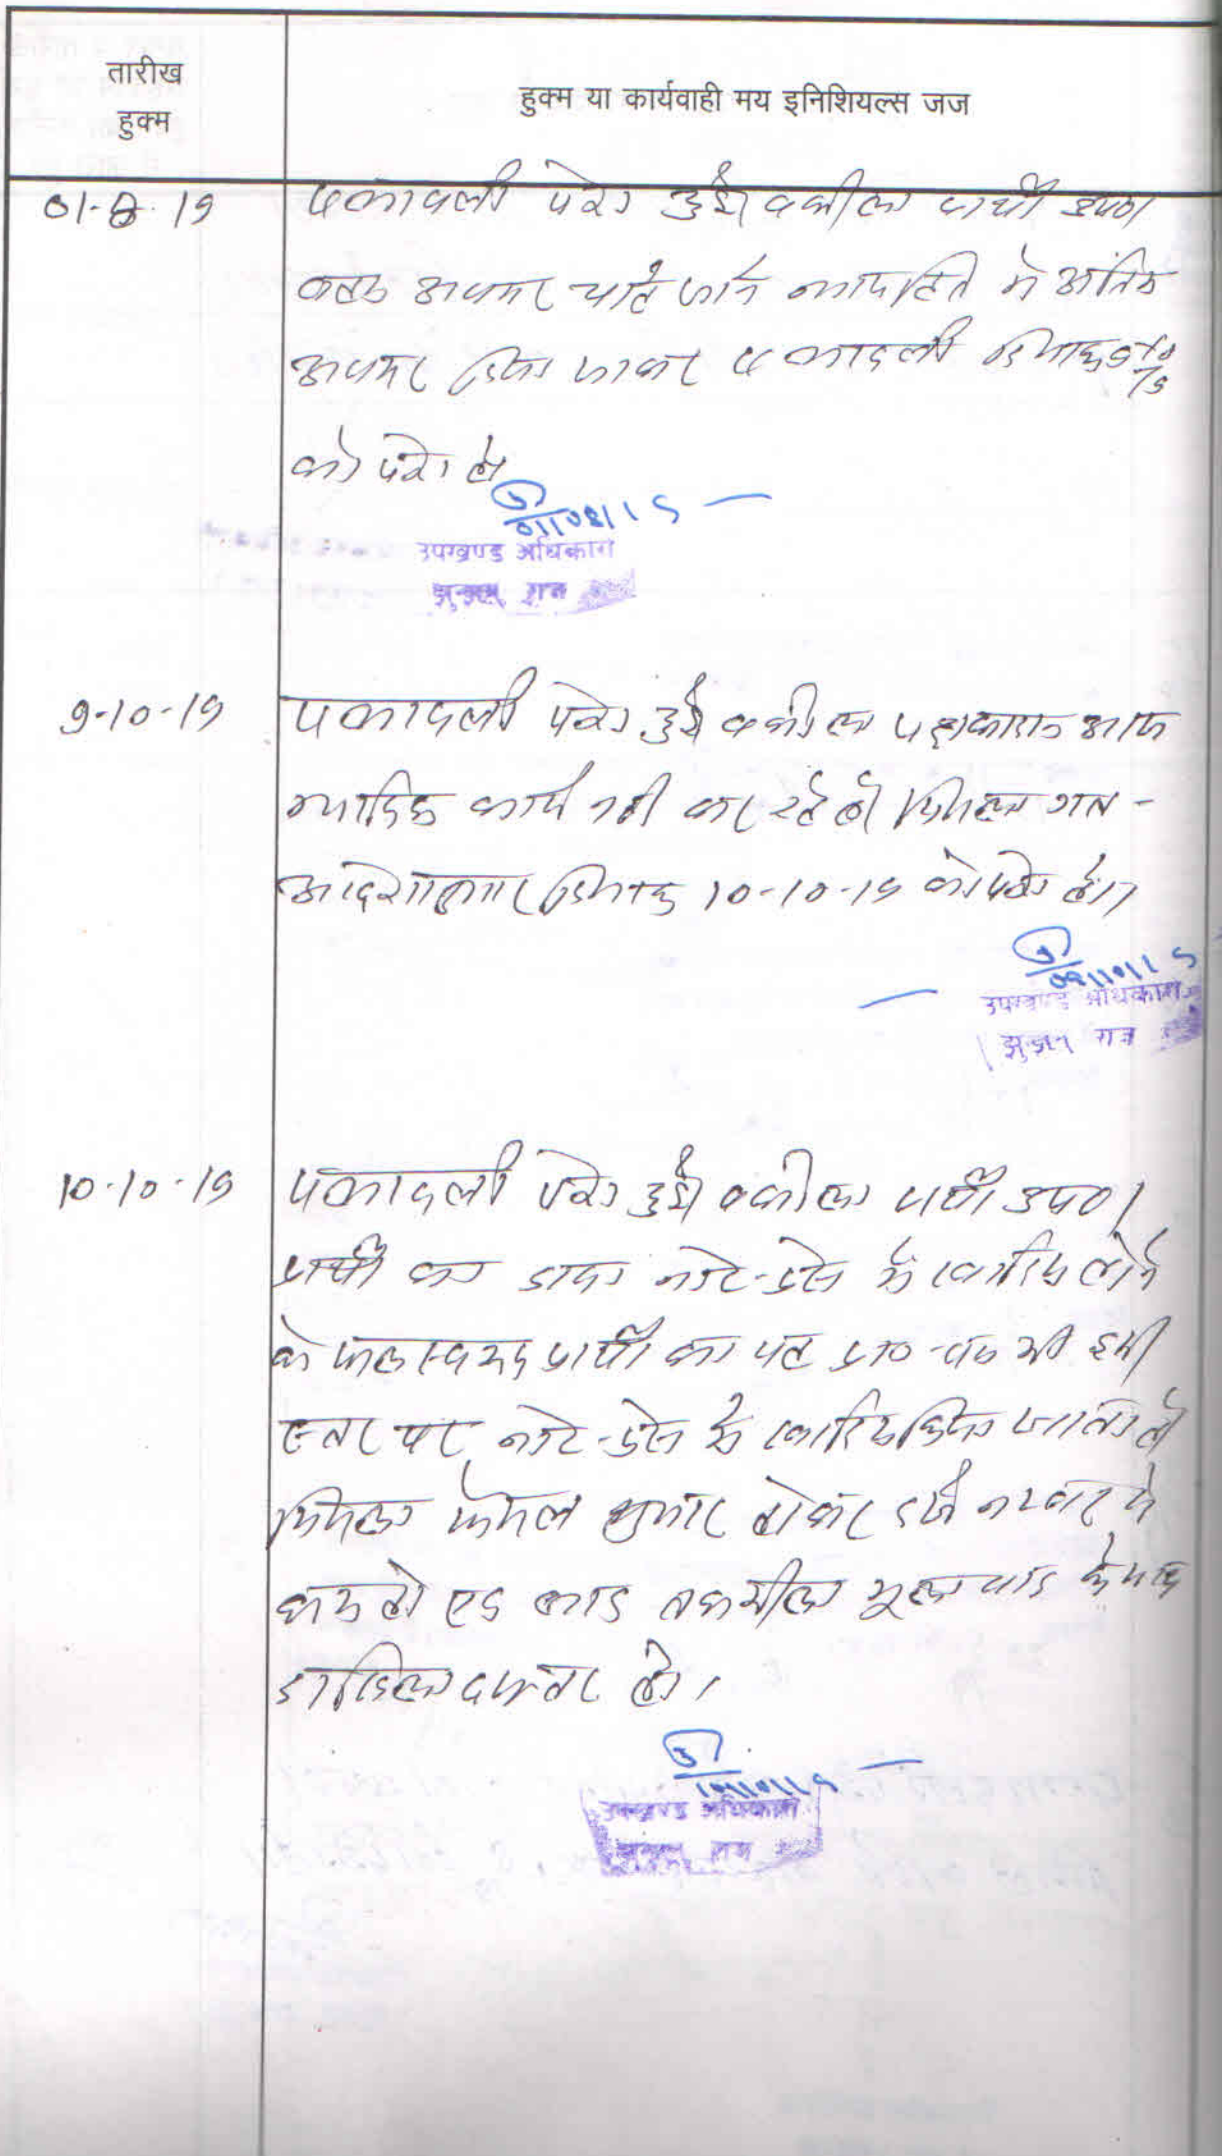 तारीख
हुक्म
हुक्म या कार्यवाही मय इनिशियल्स जज
01-8-19
पत्रावली पेश हुई। वकील प्रार्थी उप०।
बहस अवसर चाहे जाने न्यायहित में अंतिम
अवसर दिया जाकर पत्रावली दिनांक 9/10/19
को पेश हो।
01/08/19
उपखण्ड अधिकारी
झुन्झुनू राज
9-10-19
पत्रावली पेश हुई। वकील पक्षकारान आज
न्यायिक कार्य नही कर रहे है। मिसल गत -
आदेशानुसार दिनांक 10-10-19 को पेश हो।
09/10/19
उपखण्ड अधिकारी
झुन्झुनू राज
10-10-19
पत्रावली पेश हुई। वकील प्रार्थी उप०।
प्रार्थी का दावा नोट-प्रेस में खारिज होने
के फलस्वरूप प्रार्थी का यह प्रा०-पत्र भी इसी
स्तर पर नोट-प्रेस में खारिज किया जाता है।
मिसल फैसल शुमार होकर दर्ज नम्बर से
कम हो एवं बाद तकमील मूल वाद के साथ
दाखिल दफ्तर हो।
10/10/19
उपखण्ड अधिकारी
झुन्झुनू राज